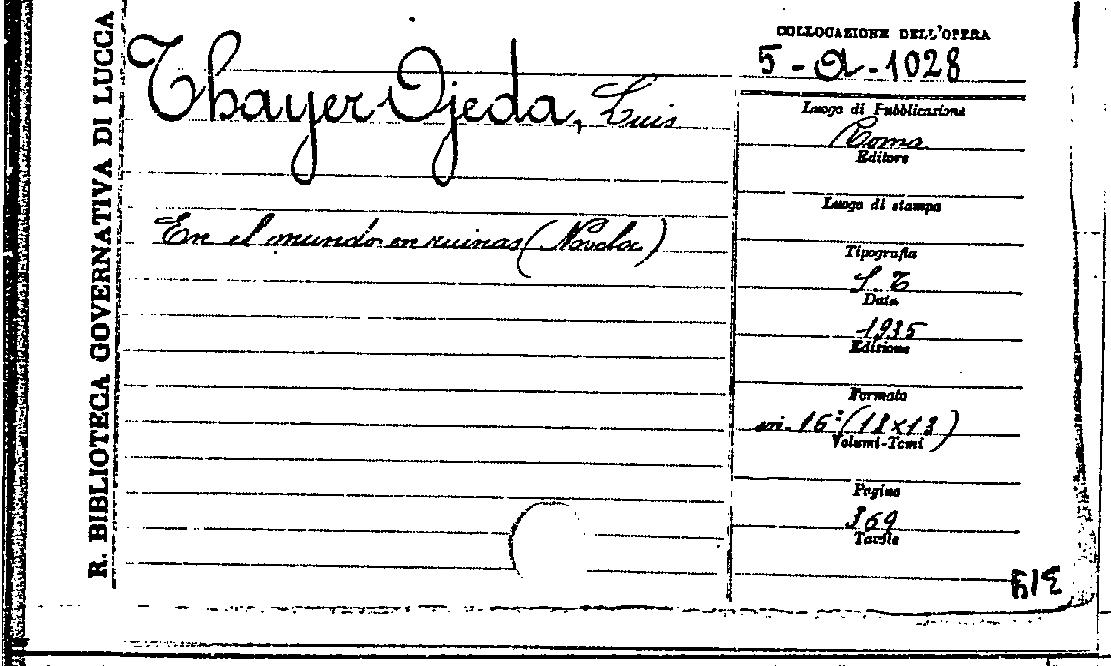 R. BIBLIOTECA GOVERNATIVA DI LUCCA
Thayer Ojeda, Luis
En el mundo en ruinas (Novela)
COLLOCAZIONE DELL'OPERA
5-A-1028
Luogo di Pubblicazione
Roma
Editore
Luogo di stampa
Tipografia
S. T.
Data
1935
Edizione
Formato
in-16° (18x13)
Volumi-Tomi
Pagine
369
Tavole